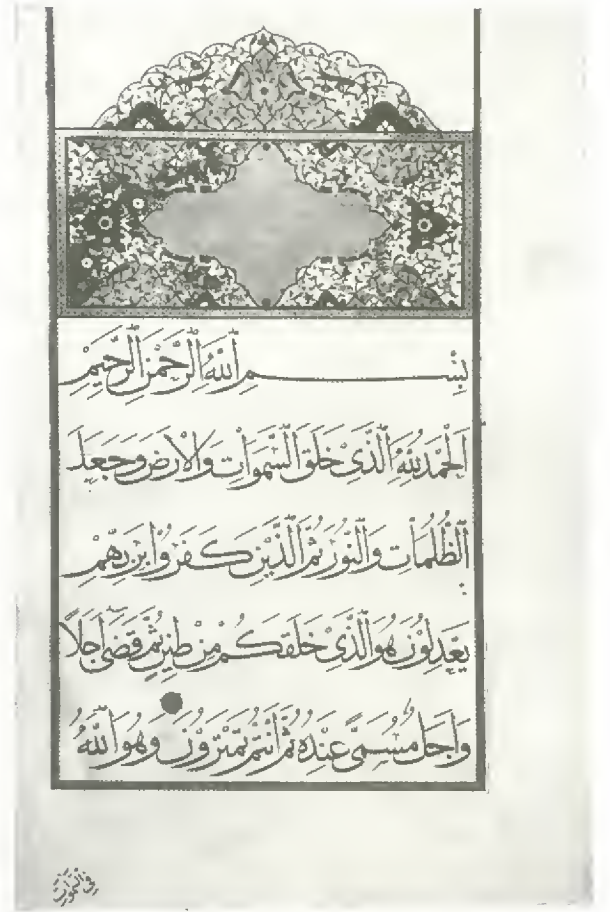 بِسْمِ اللّٰهِ الرَّحْمٰنِ الرَّحِيْمِ
اَلْحَمْدُ لِلّٰهِ الَّذِيْ خَلَقَ السَّمٰوَاتِ وَالْاَرْضَ وَجَعَلَ
الظُّلُمَاتِ وَالنُّوْرَ ثُمَّ الَّذِيْنَ كَفَرُوْا بِرَبِّهِمْ
يَعْدِلُوْنَ هُوَ الَّذِيْ خَلَقَكُمْ مِنْ طِيْنٍ ثُمَّ قَضٰى اَجَلًا
وَاَجَلٌ مُسَمًّى عِنْدَهُ ثُمَّ اَنْتُمْ تَمْتَرُوْنَ وَهُوَ اللّٰهُ
فِي السَّمٰوَاتِ